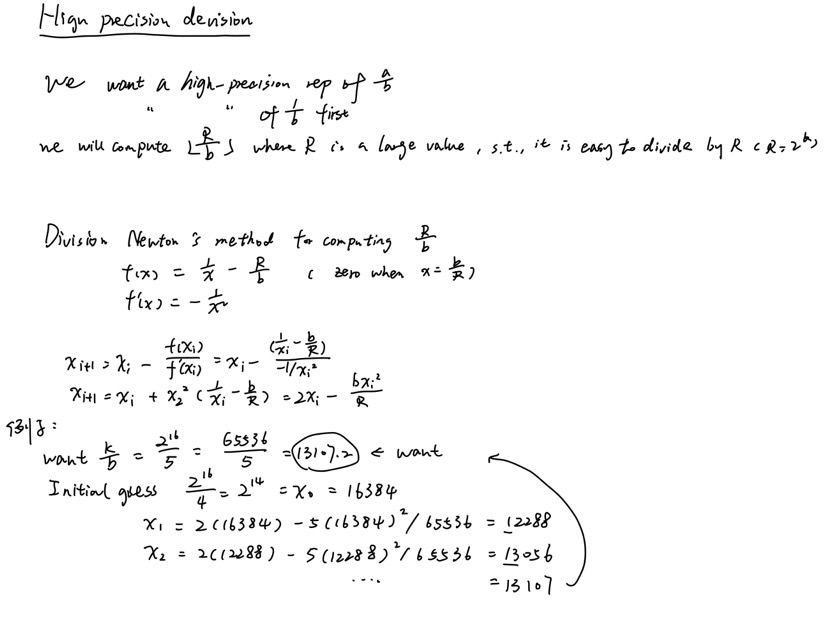 Hign precision devision
We want a high-precision rep of a/b
" " of 1/b first
we will compute ⌊R/b⌋ where R is a large value, s.t., it is easy to divide by R (R=2^k)
Division Newton's method for computing R/b
f(x) = 1/x - R/b ( zero when x = b/R )
f'(x) = - 1/x²
x_{i+1} = x_i - f(x_i)/f'(x_i) = x_i - (1/x_i - b/R)/(-1/x_i²)
x_{i+1} = x_i + x_2² (1/x_i - b/R) = 2x_i - bx_i²/R
例子:
want k/b = 2^16/5 = 65536/5 = 13107.2 ← want
Initial guess 2^16/4 = 2^14 = x_0 = 16384
x_1 = 2(16384) - 5(16384)²/65536 = 12288
x_2 = 2(12288) - 5(12288)²/65536 = 13056
.... = 13107